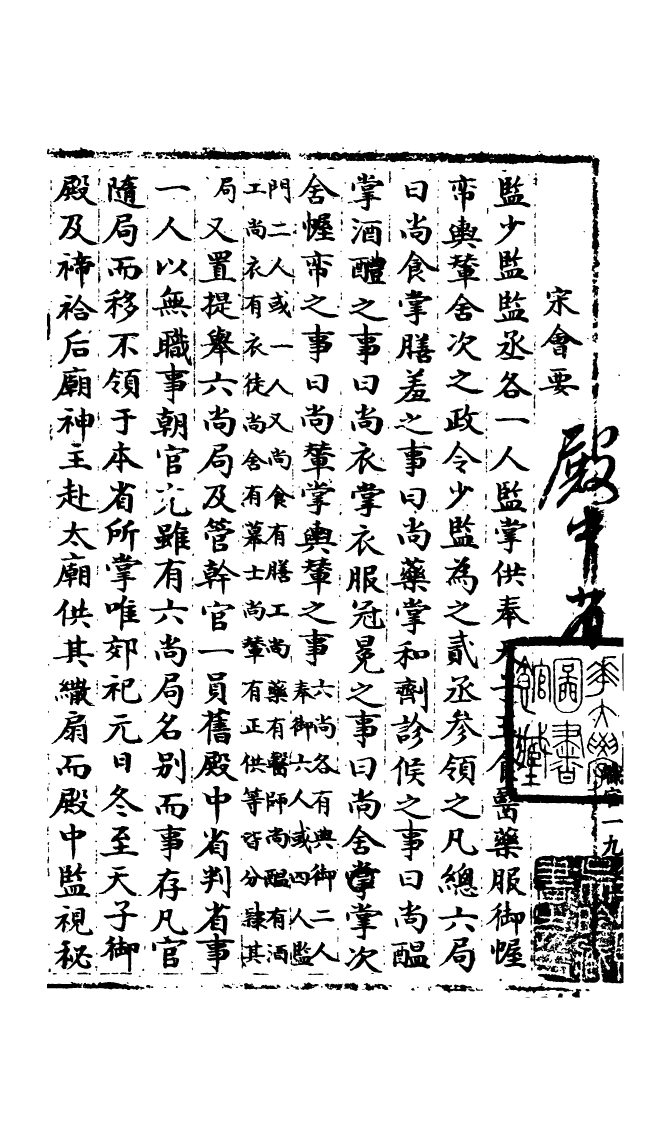 宋會要
殿中省
監少監監丞各一人監掌供奉天子玉食醫藥服御幄
帟輿輦舍次之政令少監為之貳丞參領之凡總六局
曰尚食掌膳羞之事曰尚藥掌和劑診候之事曰尚醞
掌酒醴之事曰尚衣掌衣服冠冕之事曰尚舍掌次
舍幄帟之事曰尚輦掌輿輦之事
六尚各有典御二人
奉御六人或四人監
門二人或一人又尚食有膳工尚藥有醫師尚醞有酒
工尚衣有衣徒尚舍有幕士尚輦有正供等皆分隸其
局
又置提舉六尚局及管幹官一員舊殿中省判省事
一人以無職事朝官充雖有六尚局名別而事存凡官
隨局而移不領于本省所掌唯郊祀元日冬至天子御
殿及禘祫后廟神主赴太廟供其繖扇而殿中監視秘
一九